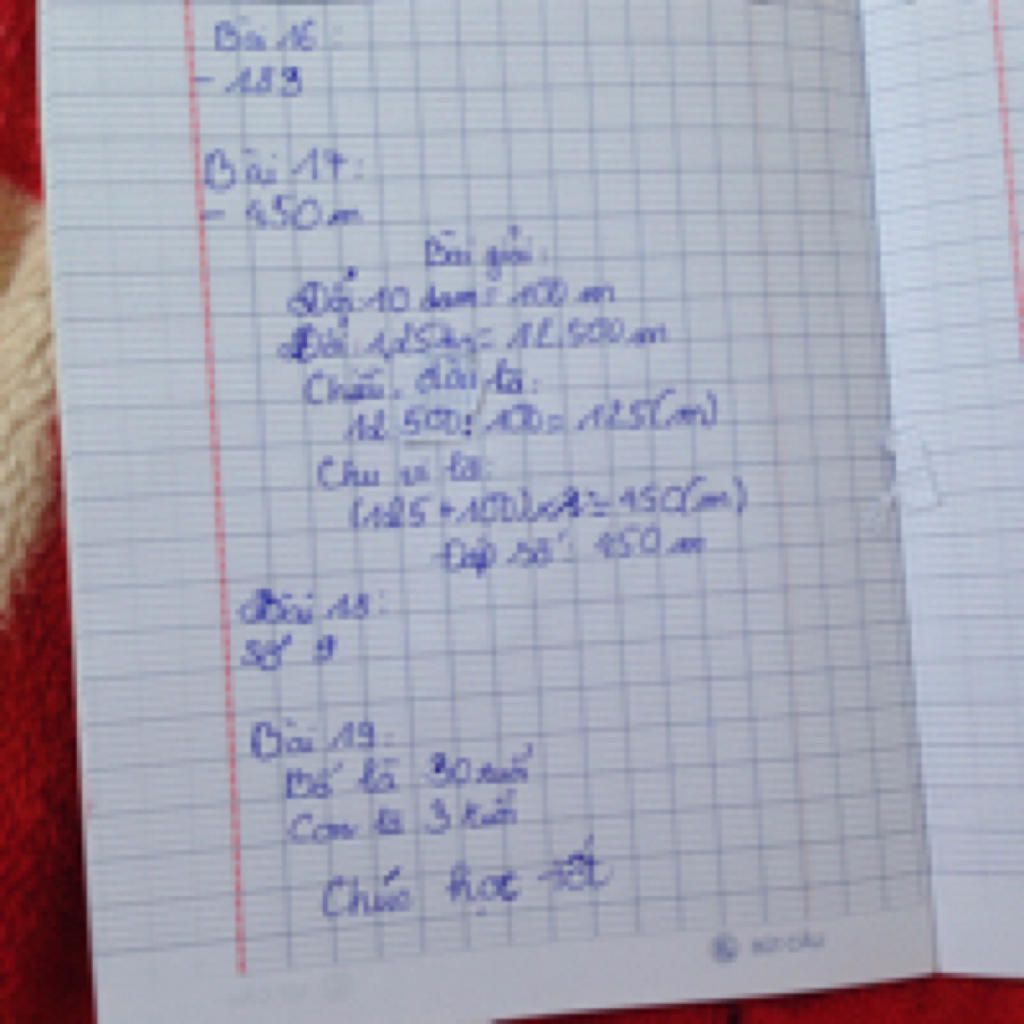 Bài 16:
- 189
Bài 17:
- 450 m
Bài giải:
Đổi 10 dam = 100 m
Đổi 1,25 = 12.500 m
Chiều dài là:
12 500 : 100 = 125 (m)
Chu vi là:
(125 + 100) x 2 = 450 (m)
Đáp số: 450 m
Bài 18:
Số 9
Bài 19:
Bố là 30 tuổi
Con là 3 tuổi
Chúc học tốt